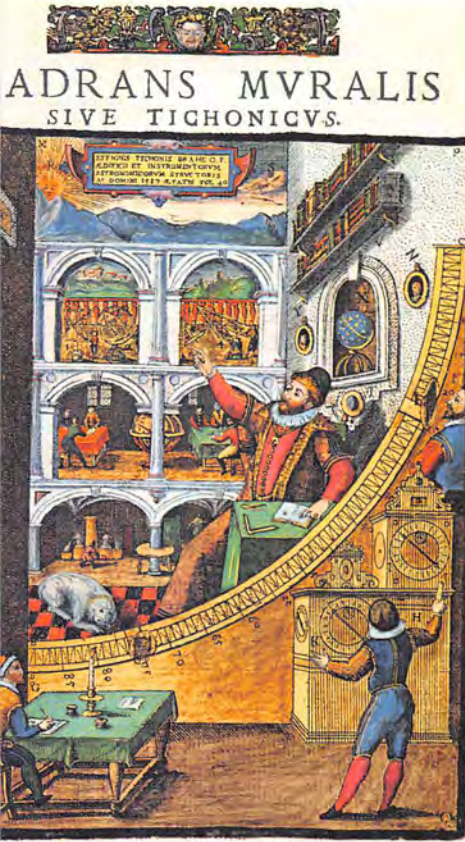 ADRANS MVRALIS
SIVE TICHONICVS.
EFFIGIES TYCHONIS BRAHE O.F.
ÆDIFICII ET INSTRUMENTORVM
ASTRONOMICORVM STRVCTORIS
Aº DOMINI 1587 ÆTATIS SVÆ 40
X
N
Z
Y
K
H
60
65
70
85
90